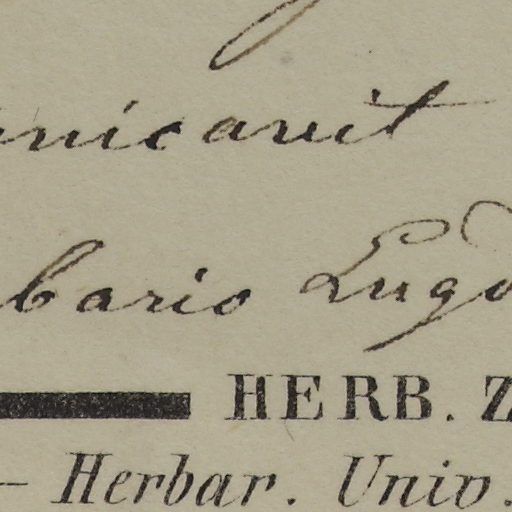 nicavit
bario Lugd
HERB. Z
— Herbar. Univ.